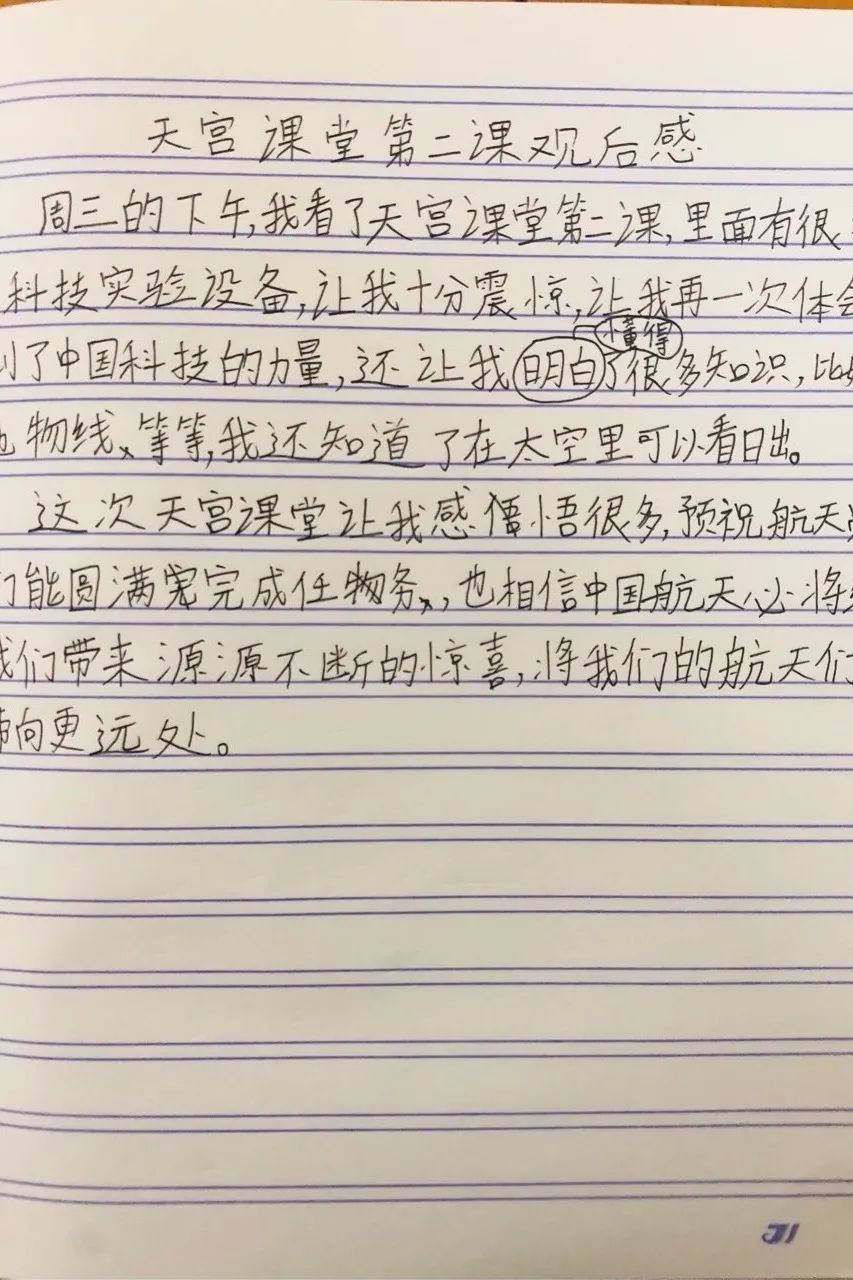 天宫课堂第二课观后感
周三的下午,我看了天宫课堂第二课,里面有很
科技实验设备,让我十分震惊,让我再一次体会
懂得
了中国科技的力量,还让我明白了很多知识,比
物线、等等,我还知道了在太空里可以看日出。
这次天宫课堂让我感悟很多,预祝航天
们能圆满完成任务,也相信中国航天必将
我们带来源源不断的惊喜,将我们的航天们
向更远处。